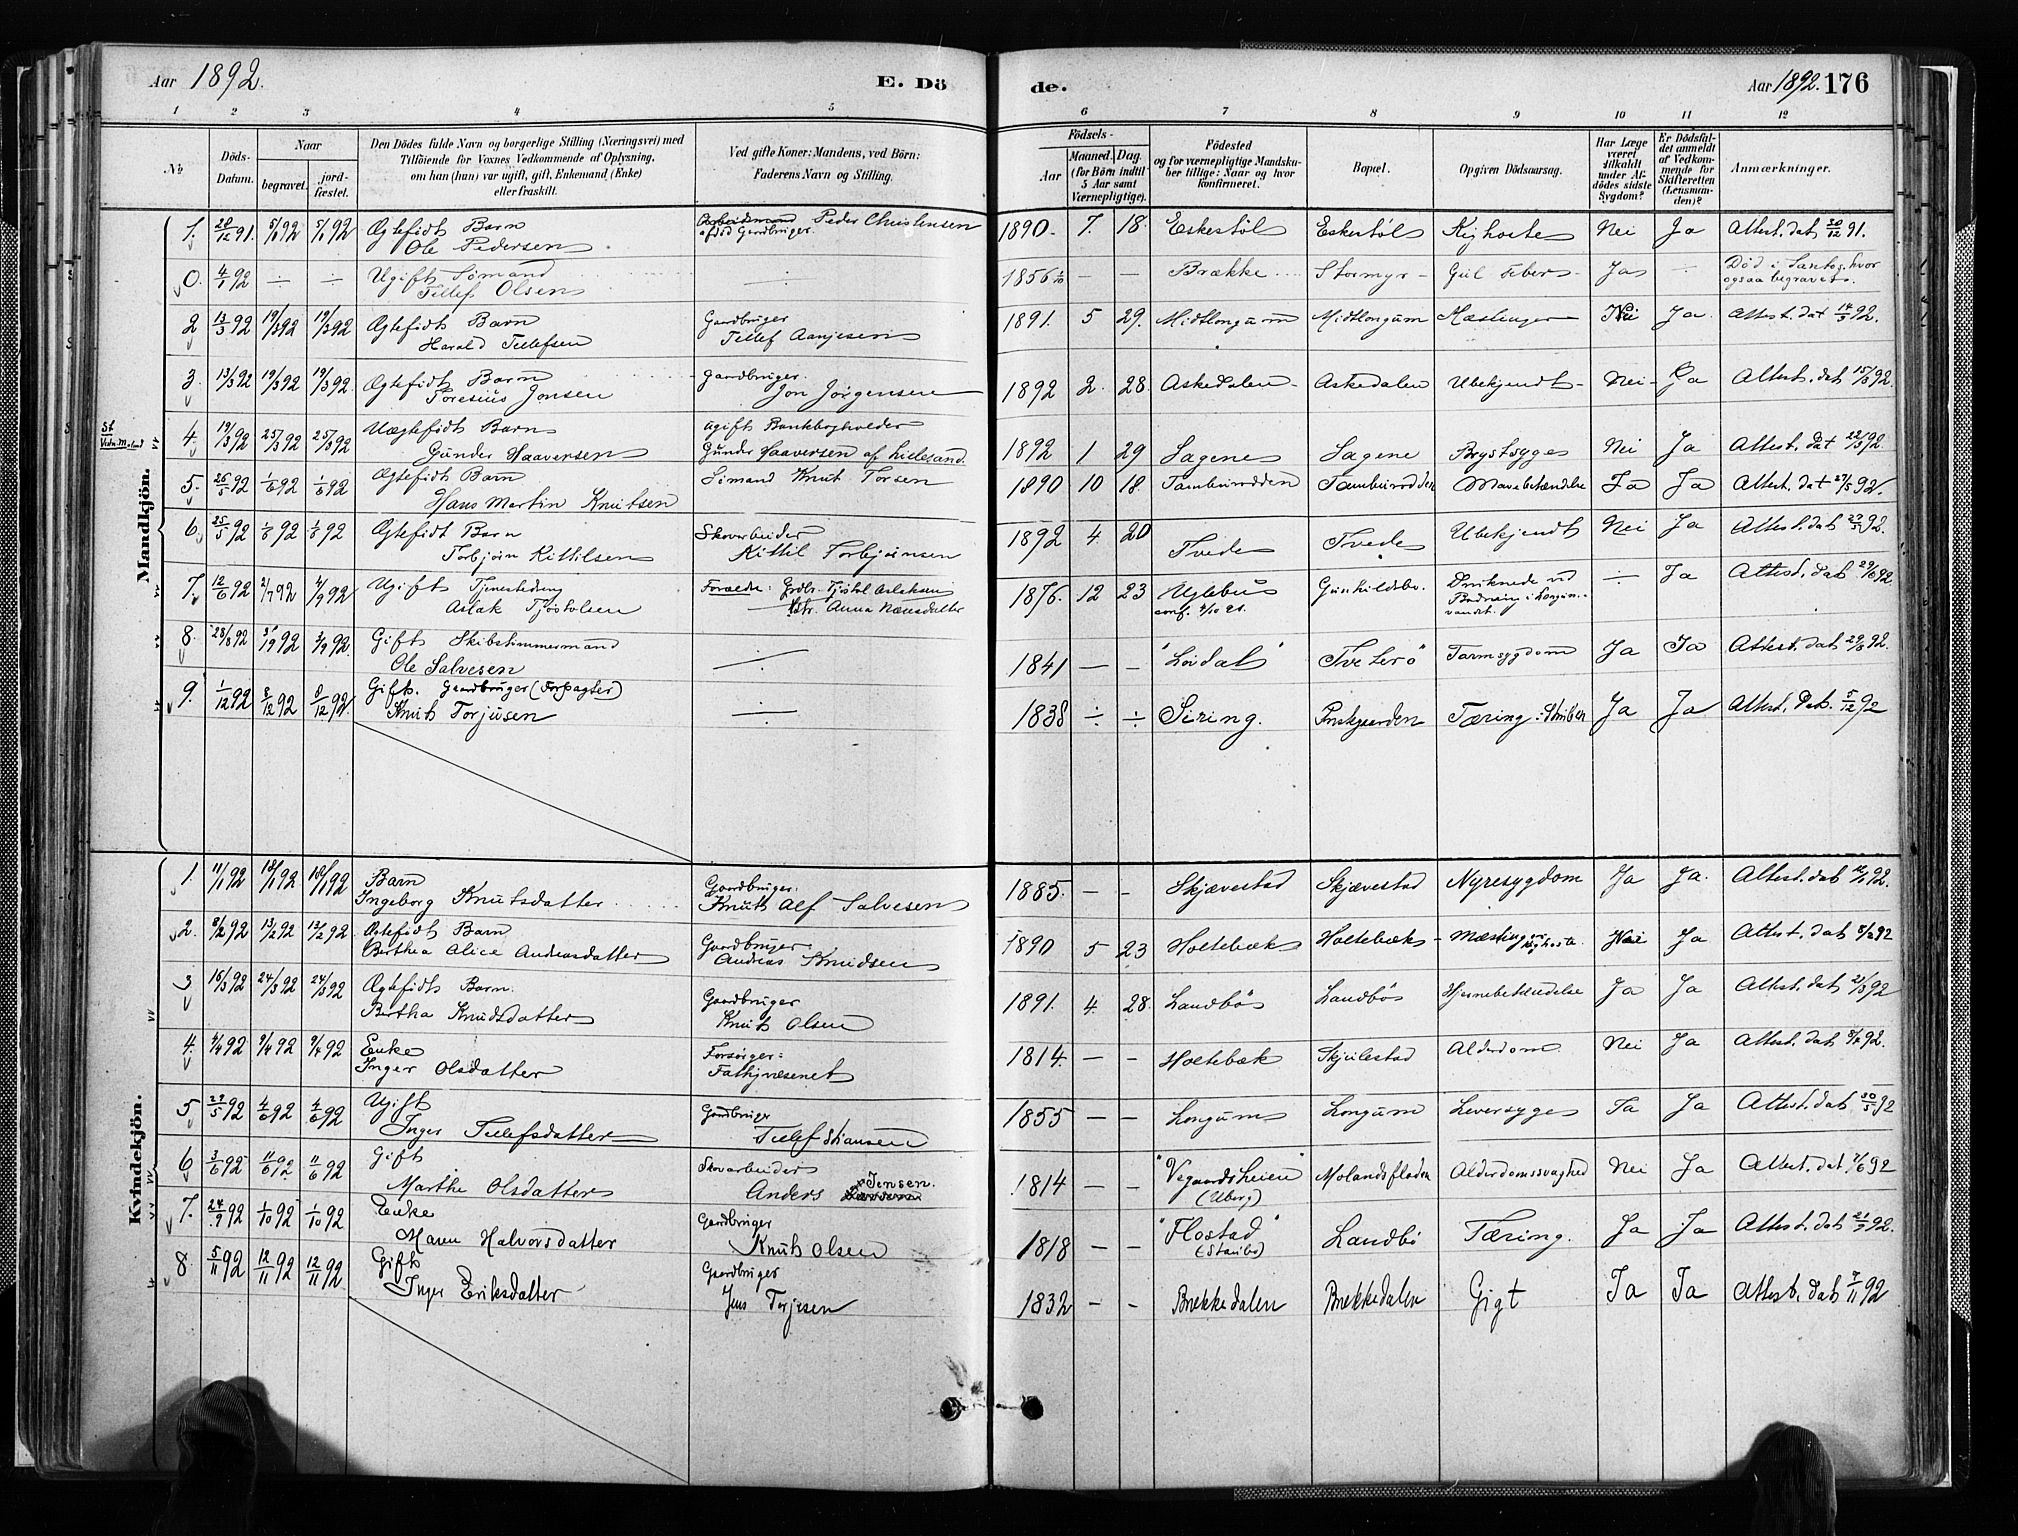 Aar 1892. E. Dö
de. Aar 1892. 176
1 2 3 4 5
6 7 8 9 10 11 12
No. Döds-Datum. Naar begravet. jordfæstet. Den Dödes fulde Navn og borgerlige Stilling (Næringsvei) med Tilföiende for Voxnes Vedkommende af Oplysning, om han (hun) var ugift, gift, Enkemand (Enke) eller fraskilt. Ved gifte Koner: Mandens, ved Börn: Faderens Navn og Stilling.
Födsels- Aar Maaned. Dag. (for Börn indtil 5 Aar samt Værnepligtige). Födested og for værnepligtige Mandskaber tillige: Naar og hvor konfirmeret. Bopæl. Opgiven Dödsaarsag. Har Læge været tilkaldt under Afdödes sidste Sygdom? Er Dödsfaldet anmeldt af Vedkommende for Skifteretten (Lensmanden)? Anmærkninger.
Mandkjön.
1. 28/12 91. 5/1 92 5/1 92 Ægtefödt Barn Ole Pedersen Gaardbruger. Peder Christensen 1890. 7. 18. Eskestöl Eskestöl Kighoste Nei Ja Attest. dat 30/12 91.
0. 4/1 92 ÷ ÷ Ugift Sömand Tellef Olsen ÷ 1856 — — Brække Stormyr Gul Feber Ja ÷ Död i Santos, hvor ogsaa begravet.
2 13/3 92 19/3 92 19/3 92 Ægtefödt Barn Harald Tellefsen Gaardbruger Tellef Aanjesen 1891. 5 29. Midtlongum Midtlongum Mæslinger Nei Ja. Attest. dat 14/3 92.
3. 13/3 92 19/3 92 19/3 92. Ægtefödt Barn Toresius Jonsen Gaardbruger. Jon Jörgensen 1892 2. 28. Askedalen Askedalen Ubekjendt Nei Ja Attest. dat 15/3 92.
4. 19/3 92 25/3 92 25/3 92 Uægtefödt Barn Gunder Haaversen Ugift Bankbogholder Gunder Haaversen af Lillesand. 1892 1 29 Sagene Sagene Brystsyge Nei Ja Attest. dat 22/3 92.
5. 26/5 92 1/6 92 1/6 92 Ægtefödt Barn Hans Martin Knutsen Sömand Knut Torsen 1890 10 18. Mavebetændelse Ja Ja Attest. dat 27/5 92.
6. 25/5 92 1/6 92 1/6 92 Ægtefödt Barn Torbjörn Kittilsen Skovarbeider Kittil Torbjörnsen 1892 4. 20 Tvede Tvede Ubekjendt Nei Ja Attest. dat 27/5 92.
7. 12/6 92 2/7 92 2/7 92 Ugift Tjenestedreng Aslak Tjöstolsen Forældre: Grdbr. Tjöstol Aslaksen Anna Nænsdatter 1876. 12 23 Uglebu conf. Gunhildsbo. Druknede ud ÷ Ja Attest. dat 29/6 92
8. 28/8 92 3/9 92 3/9 92. Gift Skibstimmermand Ole Salvesen ÷ 1841 — — "Löidal" Tveterö Tarmsygdom Ja Ja Attest. dat 29/8 92.
9. 1/12 92 8/12 92 8/12 92. Gift. Gaardbruger (Forpagter) Knut Torjusen ÷ 1838 ÷ ÷ Siring. Prestgaarden Tæring i Struben Ja Ja Attest. dat. 5/12 92
Kvindekjön.
1. 11/1 92 18/1 92 18/1 92 Barn Ingeborg Knutsdatter Gaardbruger. Knuth Alf Salvesen 1885. — — Skjævestad Skjævestad Nyresygdom Ja Ja. Attest. dat 12/1 92.
2. 8/2 92 13/2 92 13/2 92. Ægtefödt Barn Berthea Alice Andreasdatter Gaardbruger. Andreas Knudsen 1890 5 23 Holtebæk Holtebæk Mæslinger Kighoste. Nei Ja Attest. dat 8/2 92
3 16/3 92 24/3 92 24/3 92 Ægtefödt Barn. Bertha Knudsdatter Gaardbruger Knut Olsen 1891. 4. 28. Landbö Landbö Hjernebetændelse Ja Ja Attest. dat 21/3 92
4. 4/4 92 9/4 92 9/4 92 Enke Inger Olsdatter Forsörger: Fattigvæsenet 1814. — — Holtebæk Skjulestad Alderdom. Nei Ja Attest. dat 8/4 92.
5 29/5 92 4/6 92 4/6 92 Ugift Inger Tellefsdatter Gaardbruger Tellef Hansen 1855 — — Longum Longum Leversyge Ja Ja Attest. dat 30/5 92
6 3/6 92 11/6 92. 11/6 92 Gift Marthe Olsdatter Skovarbeider Anders Jensen. 1814 — — "Vegaardsheien" (Uberg) Molandsfladen Alderdomssvaghed Nei Ja Attest. dat 7/6 92
7. 24/9 92 1/10 92 1/10 92 Enke Maren Halvorsdatter Gaardbruger Knut Olsen 1818 — — "Flostad" (Staubö) Landbö Tæring. Ja Ja Attest. dat 27/9 92.
8. 5/11 92 12/11 92 12/11 92 Gift Inger Eriksdatter Gaardbruger Jens Terjesen 1832 — — Brækkedalen Brækkedalen Gigt Ja Ja Attest. dat 7/11 92